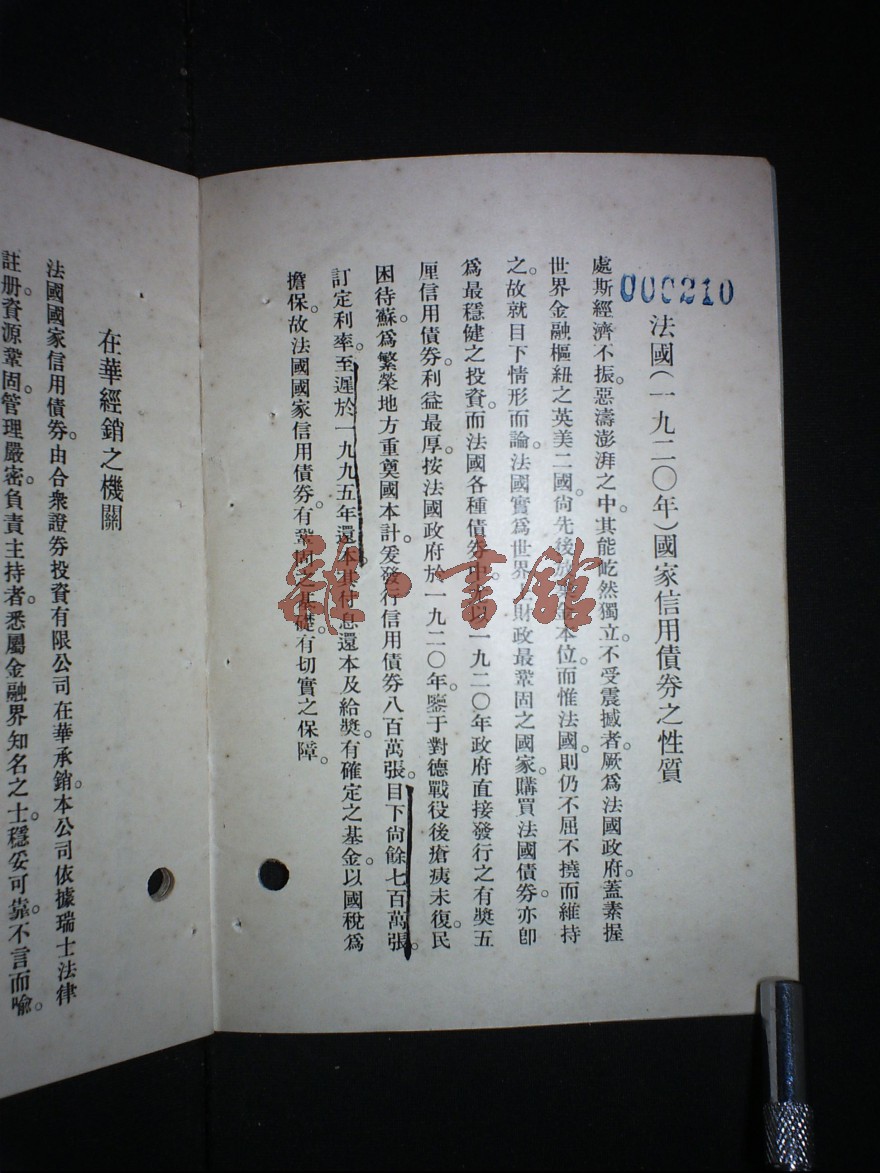 000210
法國(一九二〇年)國家信用債券之性質
處斯經濟不振。惡濤澎湃之中。其能屹然獨立。不受震撼者。厥爲法國政府。蓋素握
世界金融樞紐之英美二國。尙先後放棄金本位。而惟法國。則仍不屈不撓而維持
之。故就目下情形而論。法國實爲世界財政最鞏固之國家。購買法國債券。亦卽
爲最穩健之投資。而法國各種債券中。尤以一九二〇年政府直接發行之有獎五
厘信用債券。利益最厚。按法國政府於一九二〇年。鑒于對德戰役後。瘡痍未復。民
困待蘇。爲繁榮地方。重奠國本計。爰發行信用債券八百萬張。目下尙餘七百萬張。
訂定利率。至遲於一九九五年還本。其付息還本及給獎。有確定之基金。以國稅爲
擔保。故法國國家信用債券。有鞏固之基礎。有切實之保障。
在華經銷之機關
法國國家信用債券。由合衆證券投資有限公司在華承銷。本公司依據瑞士法律
註册。資源鞏固。管理嚴密。負責主持者。悉屬金融界知名之士。穩妥可靠。不言而喩。
雜·書館